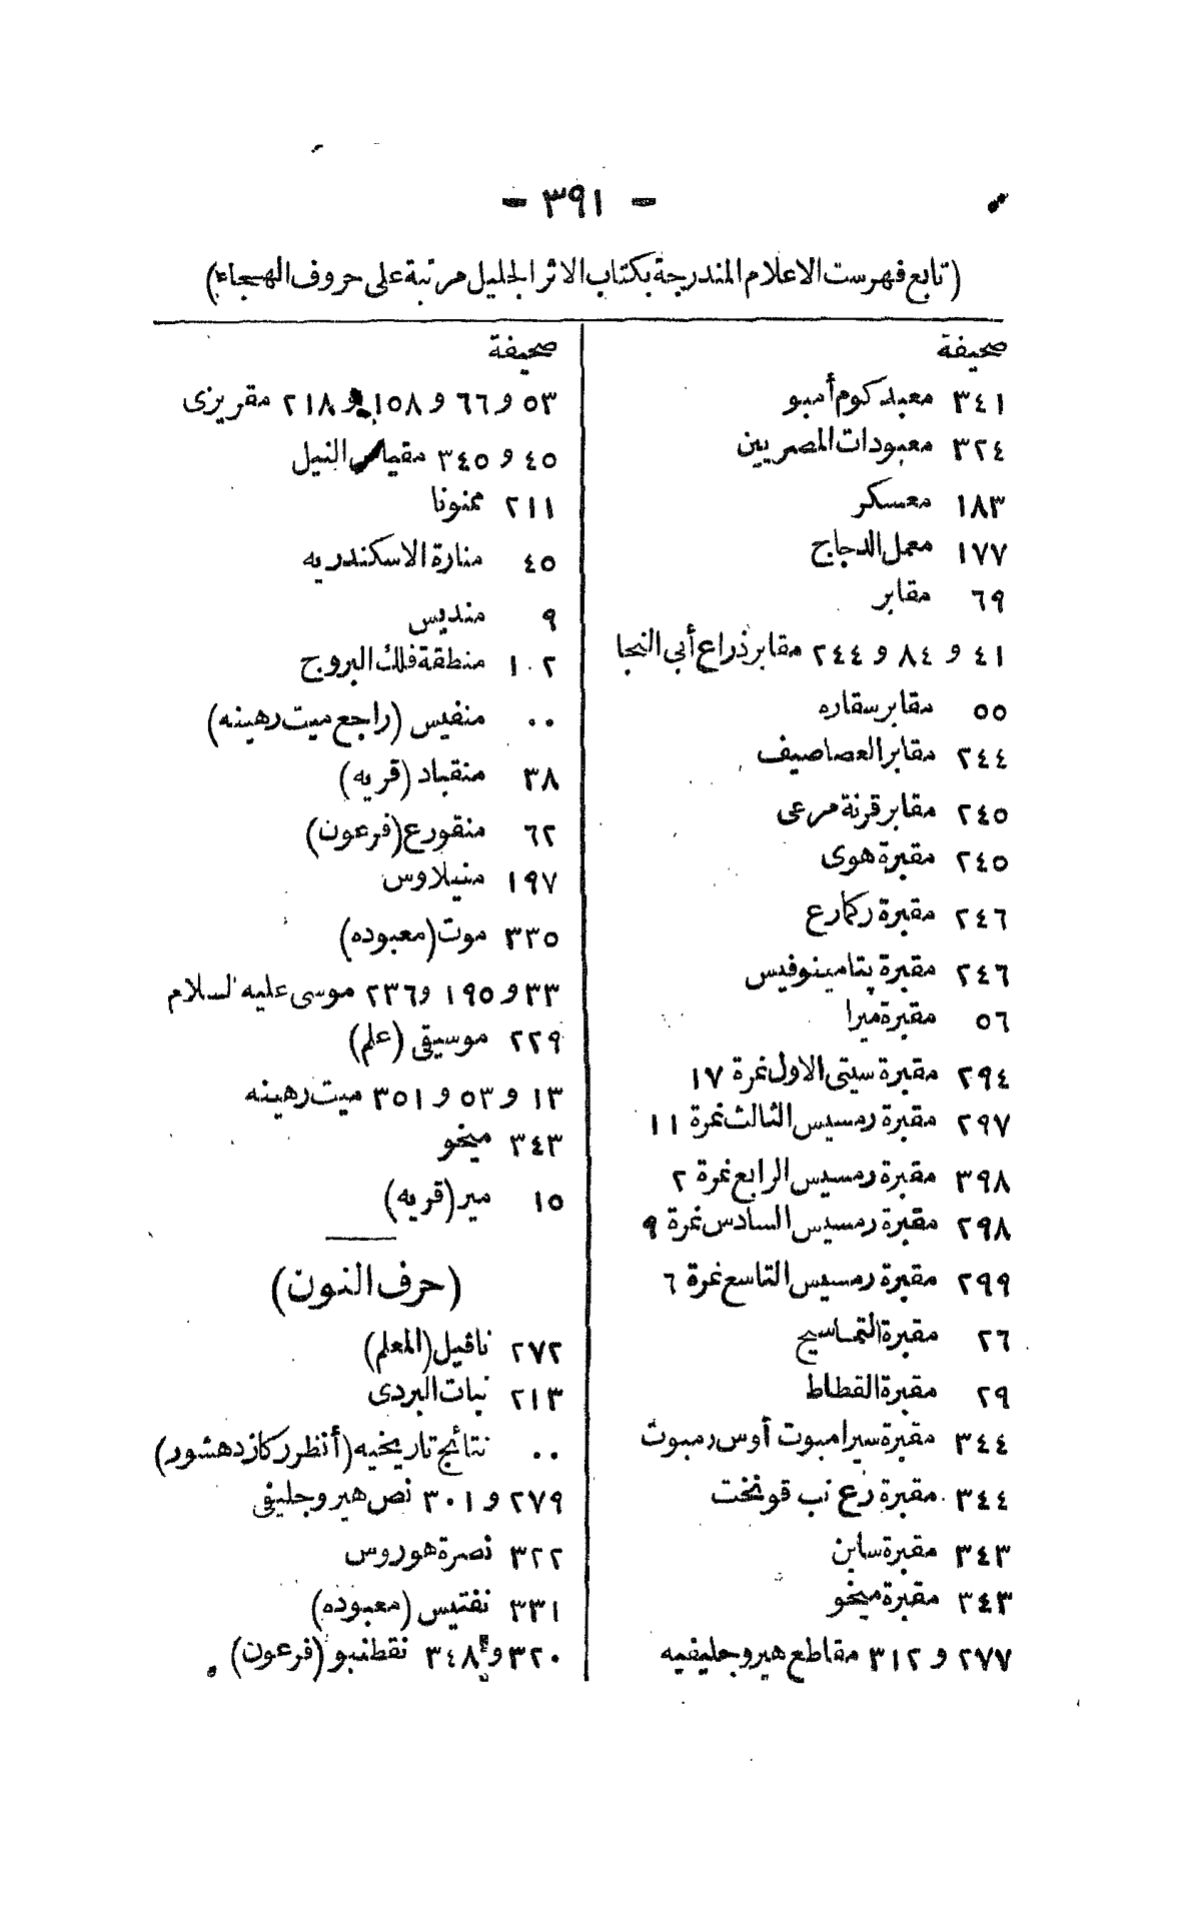 - ٣٩١ -
(تابع فهرست الاعلام المندرجة بكتاب الاثر الجليل مرتبة على حروف الهجاء)
صحيفة
٣٤١ معبد كوم أمبو
٣٢٤ معبودات المصريين
١٨٣ معسكر
١٧٧ معمل الدجاج
٦٩ مقابر
٤١ و ٨٤ و ٢٤٤ مقابر ذراع أبى النجا
٥٥ مقابر سقاره
٢٤٤ مقابر العصاصيف
٢٤٥ مقابر قرنة مرعى
٢٤٥ مقبرة هوى
٢٤٦ مقبرة ركمارع
٢٤٦ مقبرة پتامينوفيس
٥٦ مقبرة ميرا
٢٩٤ مقبرة سيتى الاول نمرة ١٧
٢٩٧ مقبرة رمسيس الثالث نمرة ١١
٣٩٨ مقبرة رمسيس الرابع نمرة ٢
٢٩٨ مقبرة رمسيس السادس نمرة ٩
٢٩٩ مقبرة رمسيس التاسع نمرة ٦
٢٦ مقبرة التماسيح
٢٩ مقبرة القطاط
٣٤٤ مقبرة سيرامبوت أوس رمبوث
٣٤٤ مقبرة رع نب قونخت
٣٤٣ مقبرة سابن
٣٤٣ مقبرة ميخو
٢٧٧ و ٣١٢ مقاطع هيروجليفيه
صحيفة
٥٣ و ٦٦ و ١٥٨ و ٢١٨ مقريزى
٤٥ و ٣٤٥ مقياس النيل
٢١١ ممنونا
٤٥ منارة الاسكندريه
٩ منديس
١٠٢ منطقة فلك البروج
٠٠ منفيس (راجع ميت رهينه)
٣٨ منقباد (قريه)
٦٢ منقورع (فرعون)
١٩٧ منيلاوس
٣٣٥ موت (معبوده)
٣٣ و ١٩٥ و ٢٣٦ موسى عليه السلام
٢٢٩ موسيقى (علم)
١٣ و ٥٣ و ٣٥١ ميت رهينه
٣٤٣ ميخو
١٥ مير (قريه)
(حرف النون)
٢٧٢ نافيل (المعلم)
٢١٣ نبات البردى
٠٠ نتائج تاريخيه (أنظر ركاز دهشور)
٢٧٩ و ٣٠١ نص هيروجليفى
٣٢٢ نصرة هوروس
٣٣١ نفتيس (معبوده)
٣٢٠ و ٣٤٨ نقطنبو (فرعون)